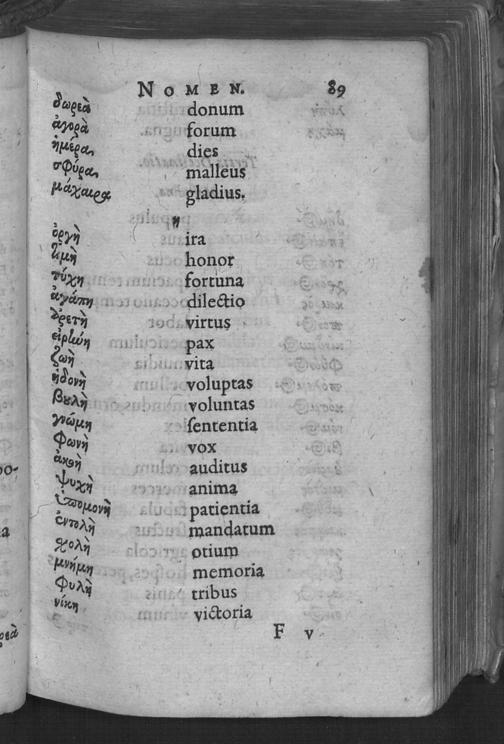 NOMEN. 89
δωρεὰ donum
ἀγορὰ forum
ἡμέρα, dies
σφύρα, malleus
μάχαιρα gladius,
η
ὀργὴ ira
τιμὴ honor
τύχη fortuna
ἀγάπη dilectio
ἀρετὴ virtus
εἰρήνη pax
ζωὴ vita
ἡδονὴ voluptas
βουλὴ voluntas
γνώμη sententia
φωνὴ vox
ἀκοὴ auditus
ψυχὴ anima
ὑπομονὴ patientia
ἐντολὴ mandatum
χολὴ otium
μνήμη memoria
φυλὴ tribus
νίκη victoria
F v